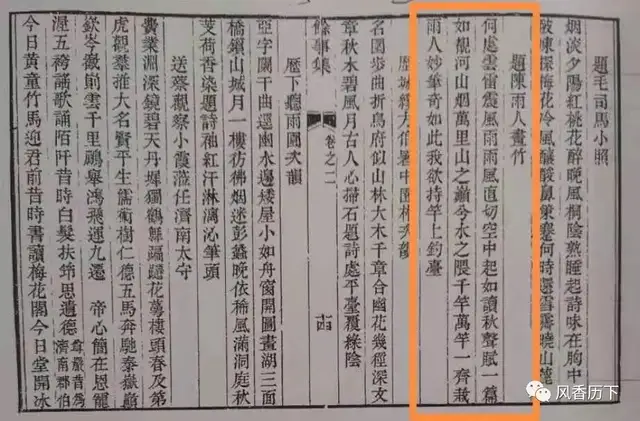 題毛司馬小照
烟淡夕陽紅桃花醉晚風桐陰熟睡起詩味在胸中
敲凍探梅花冷風釀酸鼻策蹇何時還雪霽曉山
題陳雨人畫竹
何處雲雷震風雨雨風直切空中起如讀秋聲賦一篇
如觀河山烟萬里山之巔兮水之隈千竿萬竿一齊栽
雨人妙筆奇如此我欲持竿上釣臺
歷城
名園步曲折鳥府似山林大木千章合幽花幾徑深文
章秋水碧風月古人心掃石題詩處平臺覆綠陰
歷下聽雨園次韻
亞字闌干曲逕幽水邊矮屋小如舟窗開圖畫湖三面
橋鎖山城月一樓彷彿烟迷彭蠡晚依稀風滿洞庭秋
芰荷香染題詩袖紅汗淋漓沁筆頭
送蔡觀察小霞蒞任濟南太守
費業淵深鏡碧天丹墀獨鶴縣諨躚花蕚樓頭春及第
虎觀羣推大名賢平生儒術樹仁德五馬奔馳泰嶽
嶔岑徹前雲千里鷊舉鴻飛運九遷 帝心簡在恩寵
渥五袴謳歌誦陌阡昔時白髮扶筇思遺德
今日黃童竹馬迎君前昔時書讀梅花閣今日堂開冰
餘事集
卷之二
十四
风香历下